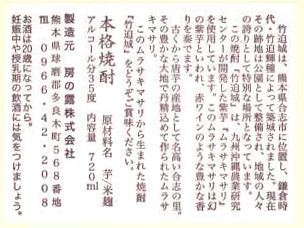 竹迫城は、熊本県合志市に位置し、鎌倉時
代、竹迫輝種によって築城されました。現在
その跡地は公園として整備され、地域の人々
の誇りとして特別な場所となっています。
この焼酎「竹迫城」は、九州沖縄農業研究
センターが開発した紫芋「ムラサキマサリ」
を使用しています。このムラサキマサリは幻
の紫芋といわれ、赤ワインのような豊かな香
りを奏でます。
古くから唐芋の産地として名高い合志の里。
その豊かな大地で丹精込めて作られたムラサ
キマサリ。
このムラサキマサリから生まれた焼酎
『竹迫城』をどうぞご賞味ください。
本格焼酎 原材料名 芋・米麹
アルコール分35度 内容量 720ml
製造元 房の露株式会社
熊本県球磨郡多良木町568番地
☎0966-42-2008
お酒は20歳になってから。
妊娠中や授乳期の飲酒には気をつけましょう。